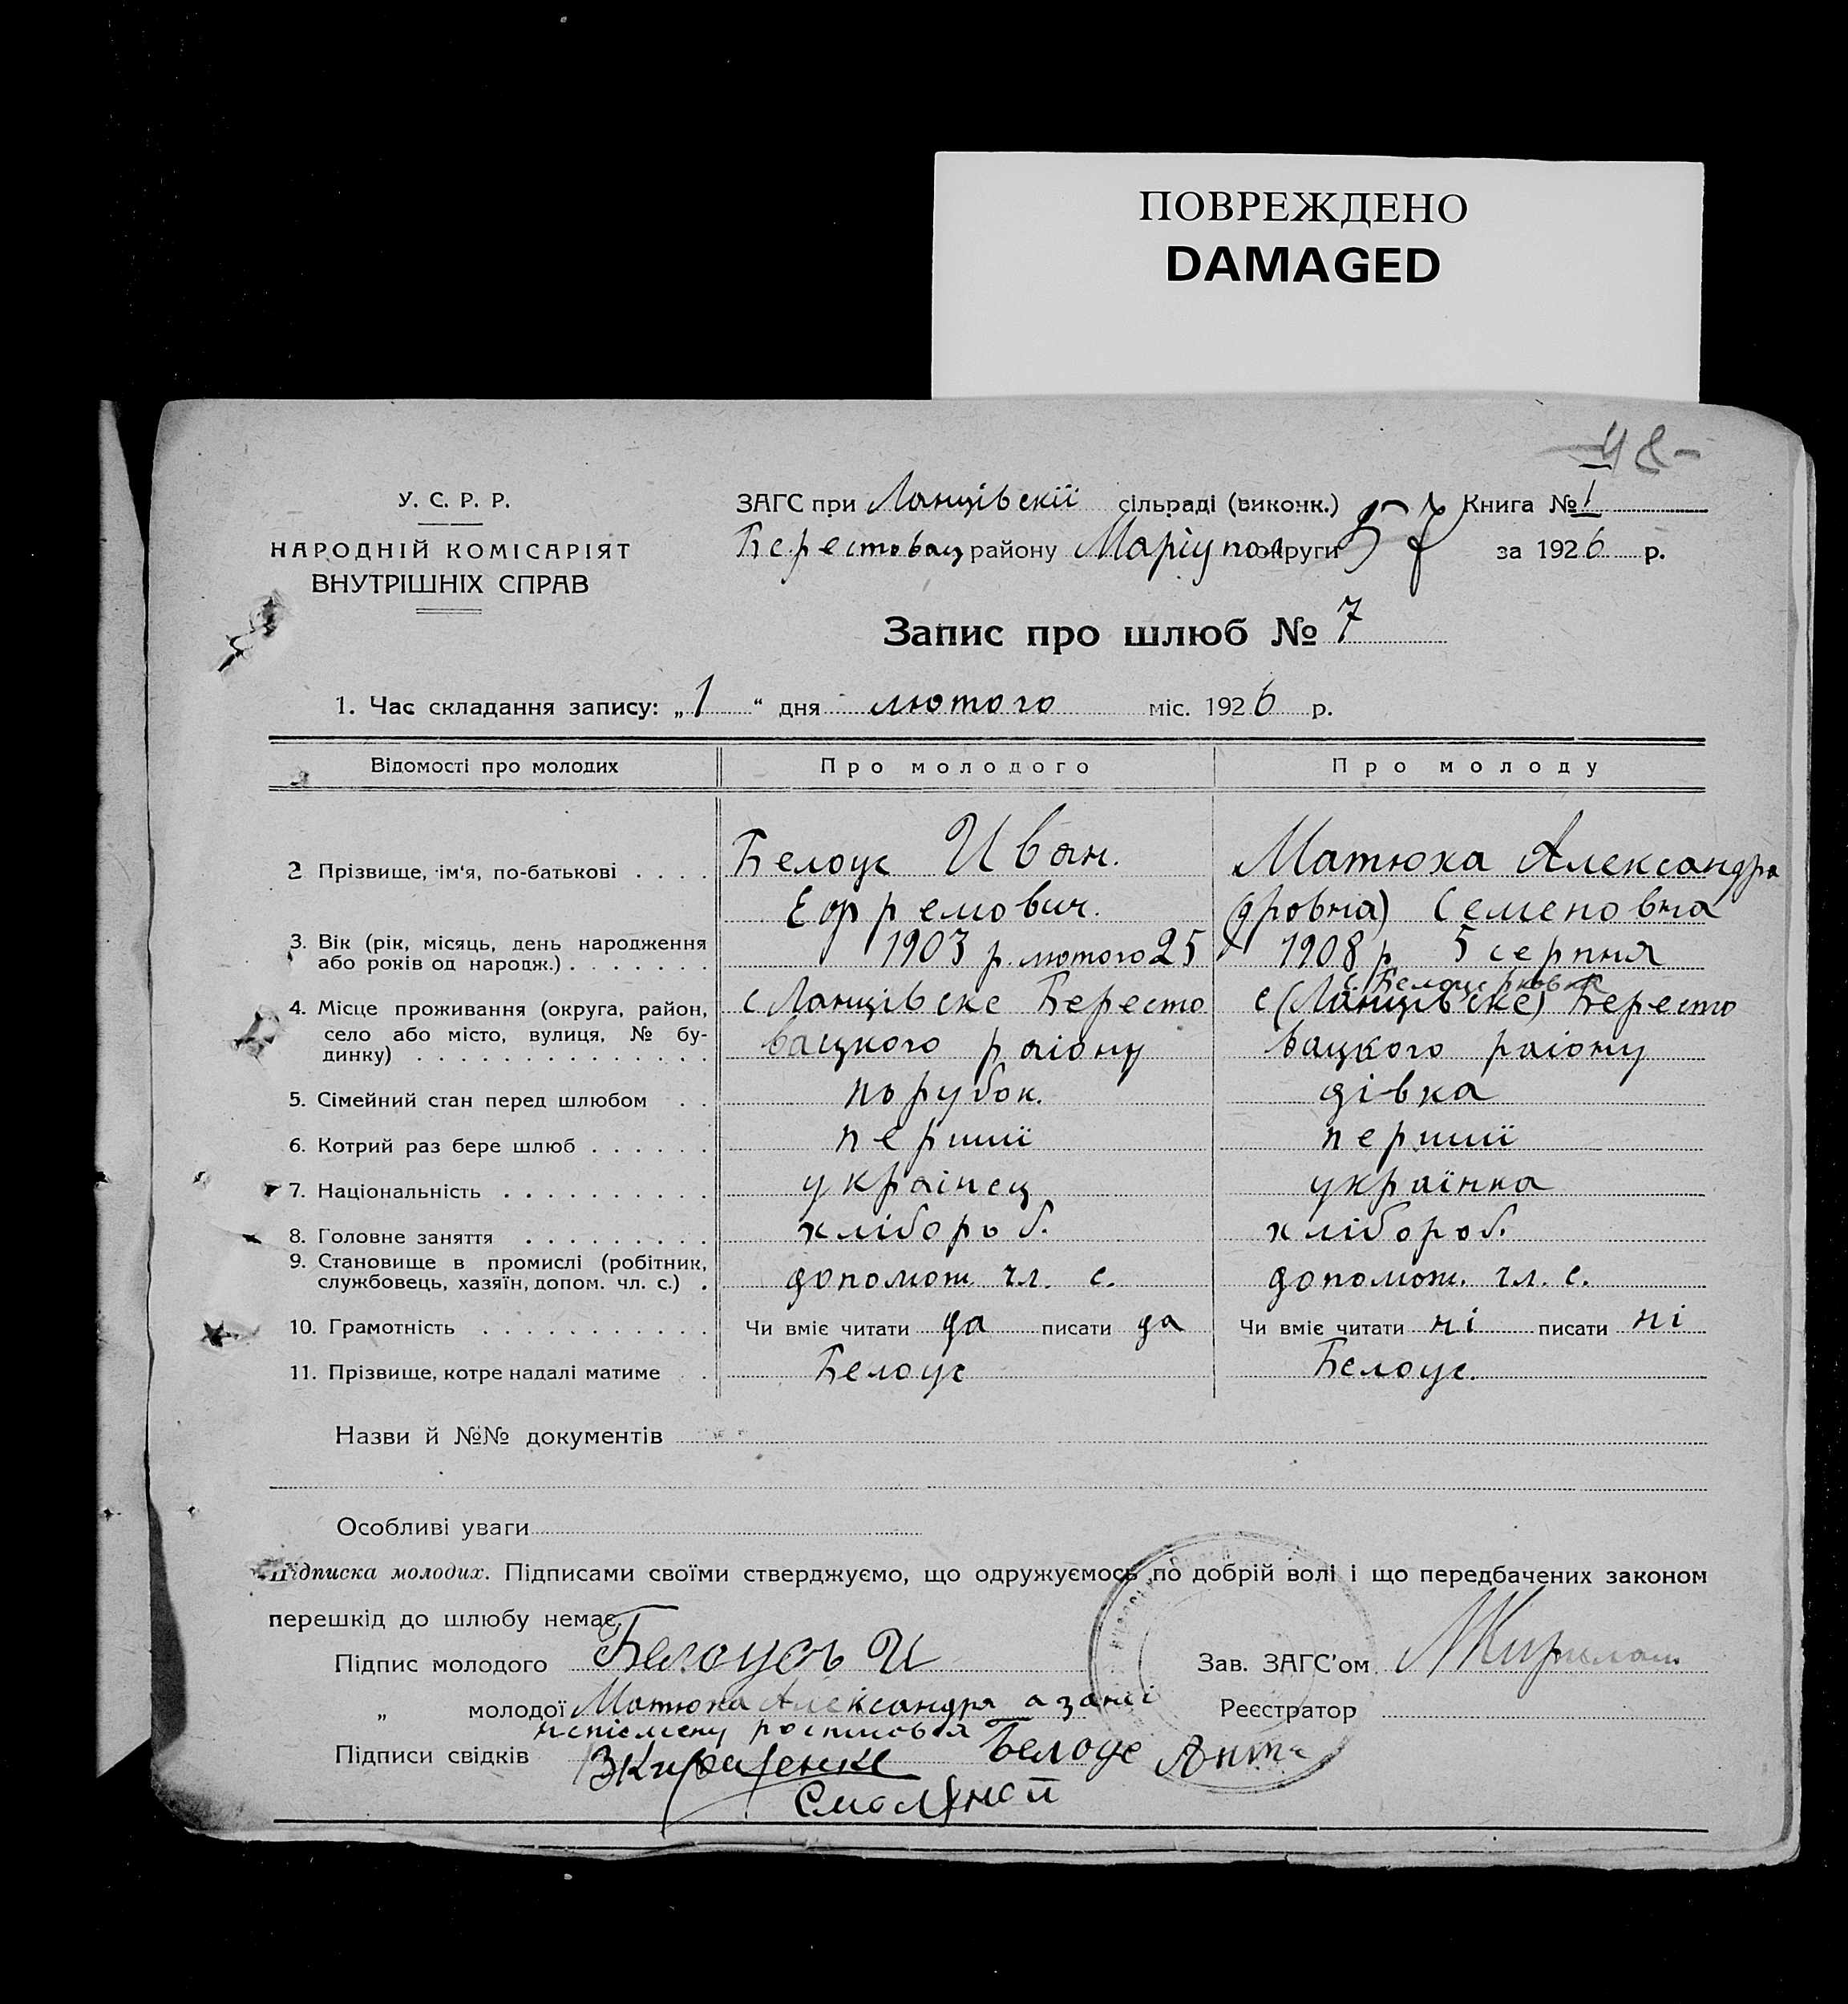 ПОВРЕЖДЕНО
DAMAGED
48-
У. С. Р. Р.
НАРОДНІЙ КОМІСАРІЯТ
ВНУТРІШНІХ СПРАВ
ЗАГС при Ланцівскії сільраді (виконк.) Книга № 1
Берестовац району Маріупол округи 57 за 1926 р.
Запис про шлюб № 7
1. Час складання запису: „1“ дня лютого міс. 1926 р.
Відомості про молодих Про молодого Про молоду
2 Прізвище, ім'я, по-батькові . . . . Белоус Иван. Матюха Александра
Ефремович. (дровна) Семеновна
3. Вік (рік, місяць, день народження
або років од народж.) . . . . . . . 1903 р. лютого 25 1908 р 5 серпня
с. Белоцерковка
4. Місце проживання (округа, район, с Ланцівске Бересто с (Ланцівске) Бересто
село або місто, вулиця, № бу-
динку) . . . . . . . . . . . . . . вацкого раіону вацкого раіону
5. Сімейний стан перед шлюбом . . порубок. дівка
6. Котрий раз бере шлюб . . . . . . перший перший
7. Національність . . . . . . . . . . українец українка
8. Головне заняття . . . . . . . . . хлібороб. хлібороб.
9. Становище в промислі (робітник,
службовець, хазяїн, допом. чл. с.) . допомож. чл. с. допомож. чл. с.
10. Грамотність . . . . . . . . . . . Чи вміє читати да писати да Чи вміє читати ні писати ні
11. Прізвище, котре надалі матиме . Белоус Белоус.
Назви й №№ документів
Особливі уваги
Підписка молодих. Підписами своїми стверджуємо, що одружуємось по добрій волі і що передбачених законом
перешкід до шлюбу немає.
Підпис молодого Белоусъ И Зав. ЗАГС'ом
„ молодої Матюха Александра а за нєї Реєстратор
неписмену росписовся
Підписи свідків Белоус
Смоляной